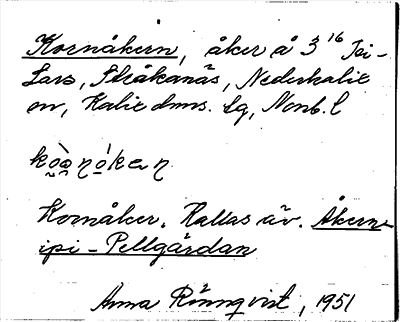 Kornåkern, åker å 3¹⁶ Jei-
Lars, Stråkanäs, Nederkalix
sn, Kalix dms. lg, Nonb. l
kòrnókern
Kornåker. Kallas äv. Åkern
ipi-Pellgärdan
Anna Rönnqvist, 1951